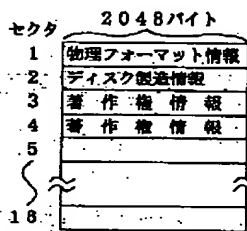 2048バイト
セクタ
1 物理フォーマット情報
2 ディスク製造情報
3 著作権情報
4 著作権情報
5
18